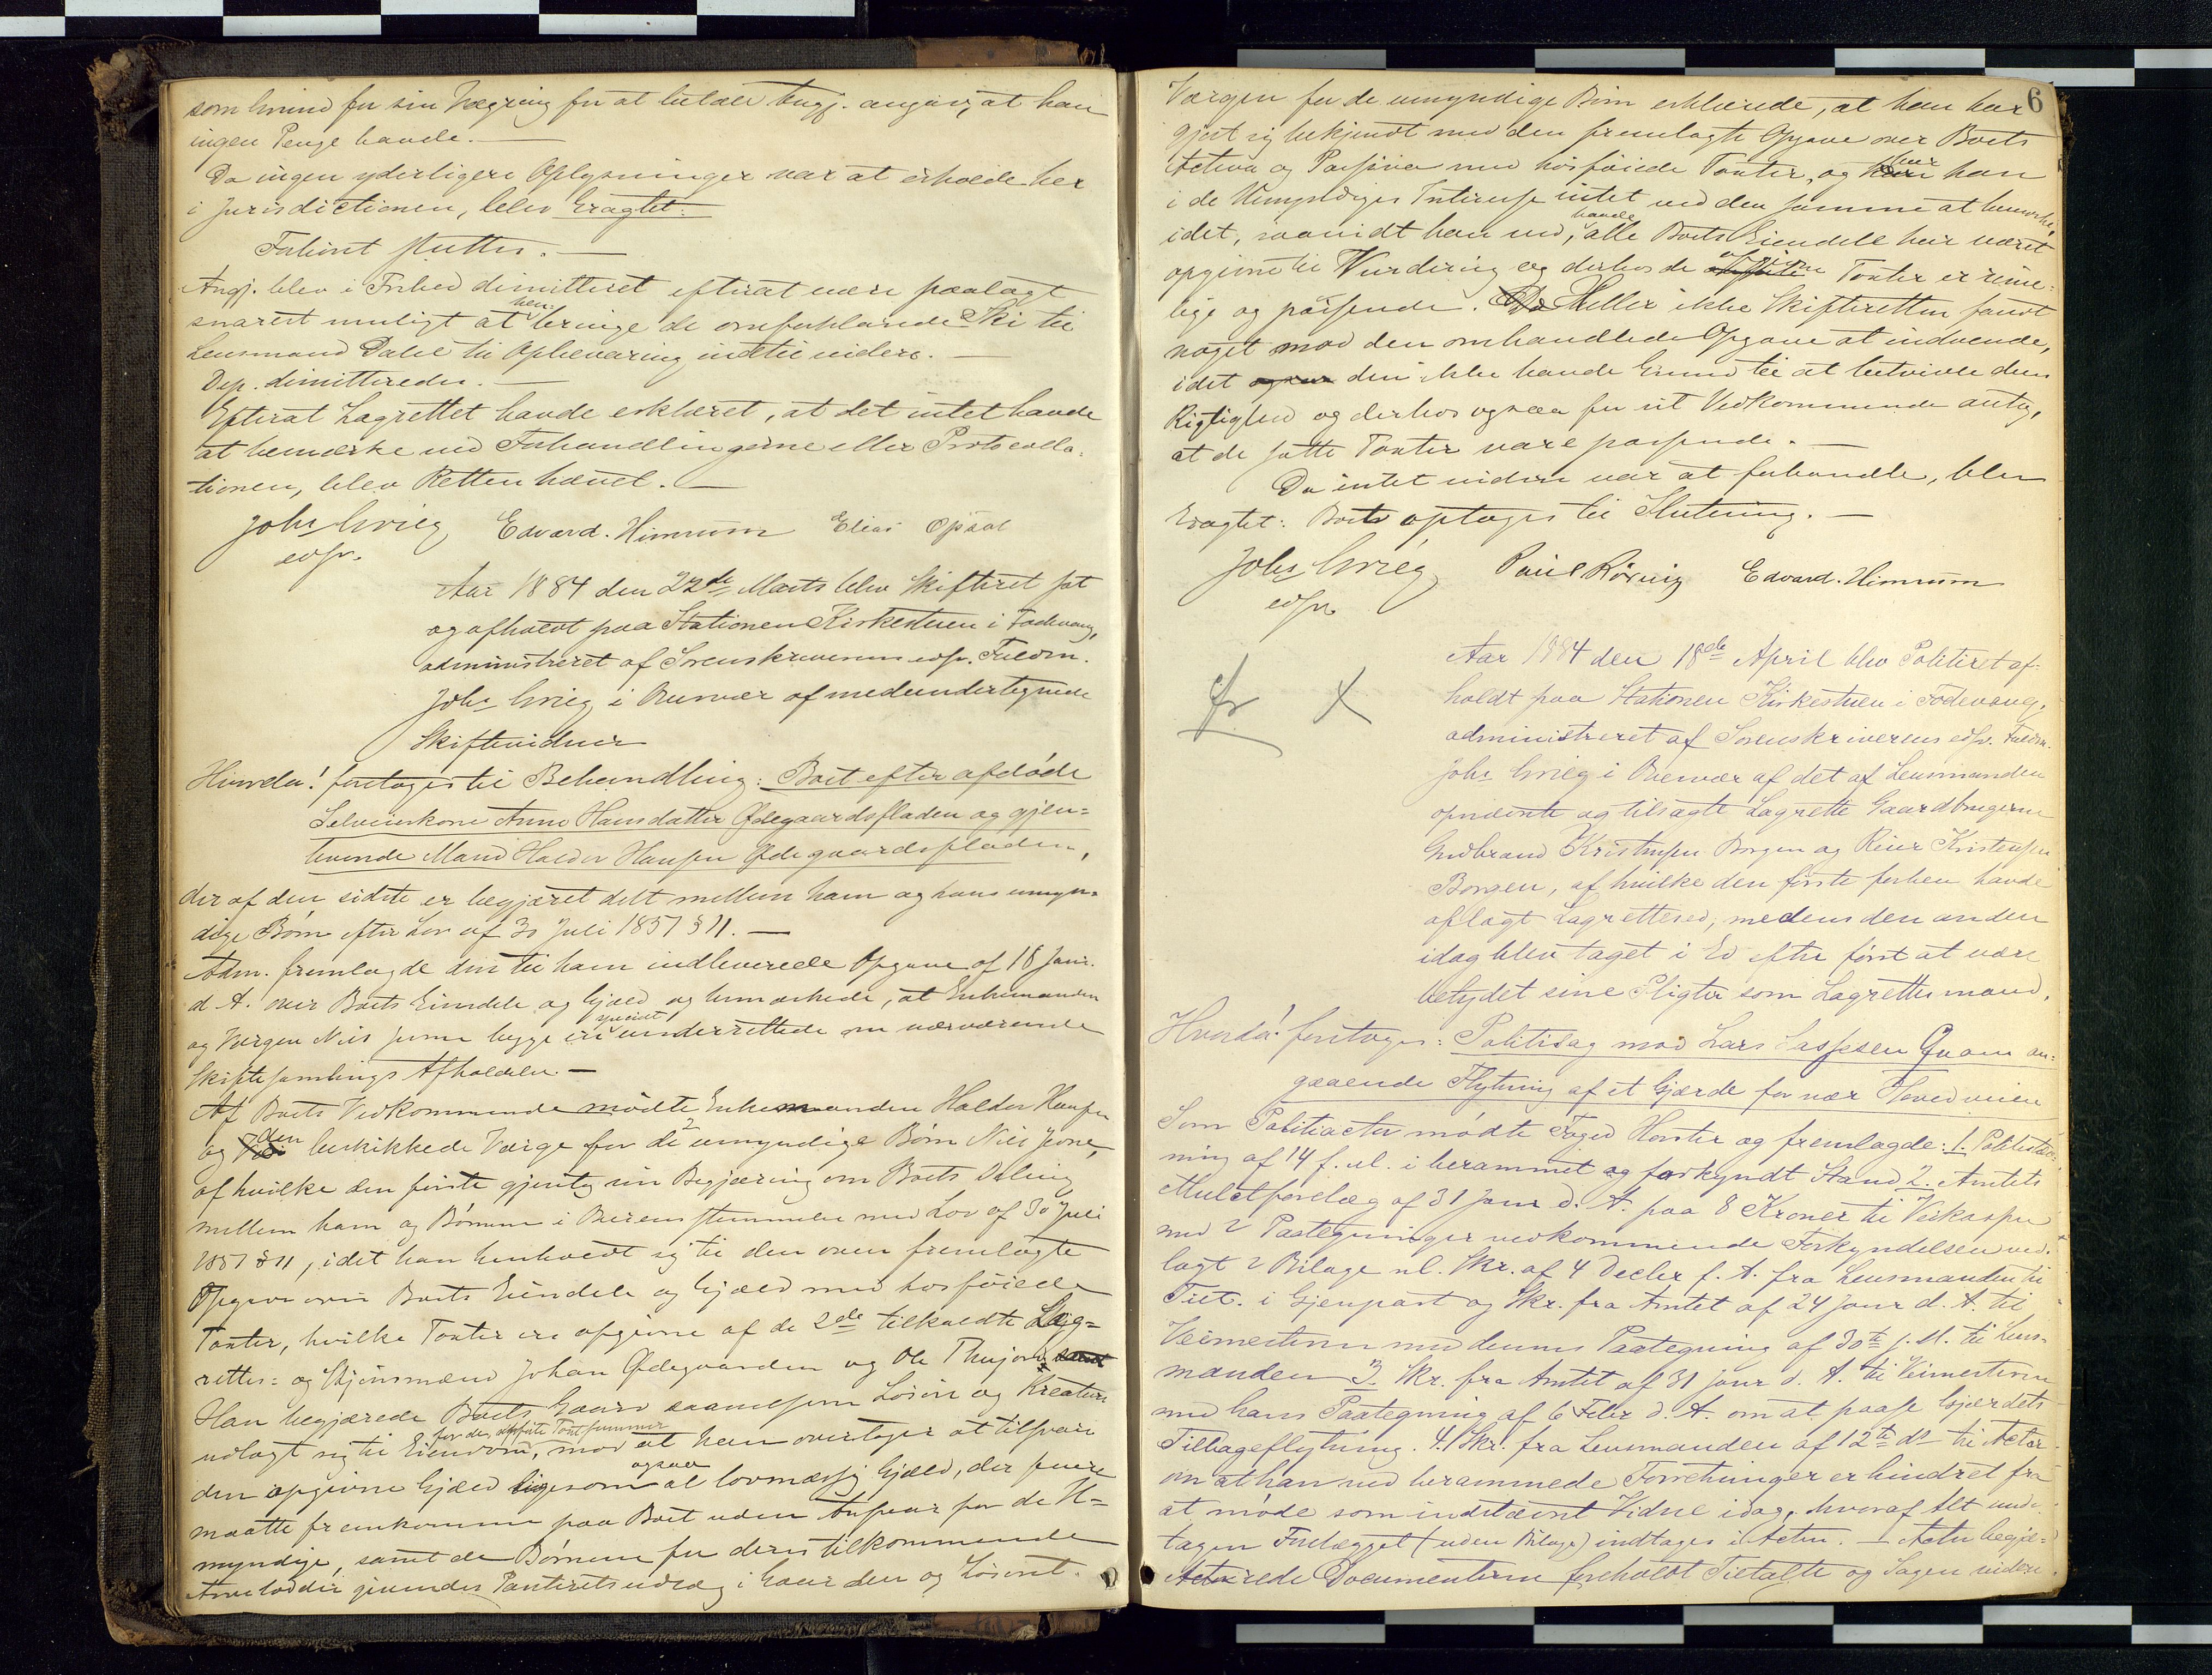 som Grund for sin Vægring for at betale Angj. angav, at han
ingen Penge havde. —
Da ingen yderligere Oplysninger var at erholde her
i Jurisdictionen, blev Eragtet:
Forhøret sluttes. —
Angj. blev i Frihed dimitteret efterat være paalagt
snarest muligt at hen bringe de omforklarede Ski til
Lensmand Dahl til Opbevaring indtil videre. —
Dep. dimitteredes. —
Efterat Lagrettet havde erklæret, at det intet havde
at bemærke ved Forhandlingerne eller Protocolla-
tionen, blev Retten hævet. —
Johs Grieg Edvard. Himrum Elias Opsal
edsv.
Aar 1884 den 22de Marts blev Skifteret sat
og afholdt paa Stationen Kirkestuen i Fodvang,
administreret af Sorenskriverens edsv. Fuldm.
Johs Grieg i Overvær af medundertegnede
Skiftevidner
Hvorda! foretoges til Behandling: Boet efter afdøde
Selveierkone Anne Hansdatter Ødegaardsfladen og gjen-
levende Mand Haldor Hansen Ødegaardsfladen,
der af den sidste er begjæret delt mellem ham og hans umyn-
dige Børn efter Lov af 30 Juli 1851 § 11. —
Adm. fremlagde den til ham indleverede Opgave af 18 Janr.
d. A. over Boets Eiendele og Gjæld og bemærkede, at Enkemanden
og Værgen Nils begge ere specielt underrettede om nærværende
Skiftesamlings Afholdelse —
Af Boets Vedkommende mødte Enkemanden Haldor Hansen
og den beskikkede Værge for de 2 umyndige Børn Nils
af hvilke den første gjentog sin Begjæring om Boets Deling
mellem ham og Børnene i Overensstemmelse med Lov af 30 Juli
1851 § 11, idet han henholdt sig til den oven fremlagte
Opgave over Boets Eiendele og Gjæld med hosføiede
Taxter, hvilke Taxter ere opgivne af de 2de tilkaldte Lag-
rettes- og Skjønsmænd Johan Ødegaarden og Ole
Han begjærede Boets Gaard saavelsom Løsøre og Kreature
udlagt sig til Eiendom, for de ansatte Taxtsummer mod at han overtager at tilsvare
den opgivne Gjæld ligesom ogsaa al lovmæssig Gjæld, der senere
maatte fremkomme paa Boet uden Ansvar for de U-
myndige, samt de Børnene for deres tilkommende
Arvelodder givendes Panteretsudlæg i Gaarden og Løsøret.
6
Værgen for de umyndige Børn erklærede, at han har
gjort sig bekjendt med den fremlagte Opgave over Boets
Activa og Passiva med hosføiede Taxter, og har han
i de Umyndiges Interesse intet ved den samme at bemærke,
idet, saavidt han ved, havde alle Boets Eiendele her været
opgivne til Vurdering og derhos de Taxter er rime-
lige og passende. Heller ikke Skifteretten fandt
noget mod den omhandlede Opgave at indvende,
idet den ikke havde Grund til at betvivle dens
Rigtighed og derhos ogsaa for sit Vedkommende antog,
at de satte Taxter vare passende. —
Da intet videre var at forhandle, blev
Eragtet: Boet optages til Slutning. —
Johs Grieg Paul Rørvig Edvard. Himrum
edsv.
Aar 1884 den 18de April blev Politiret af-
holdt paa Stationen Kirkestuen i Fodvang,
administreret af Sorenskriverens edsv. Fuldm.
Johs Grieg i Overvær af det af Lensmanden
opnævnte og tilsagte Lagrette Gaardbrugerne
Gudbrand Kristensen Borgen og Reier Kristensen
Borgen, af hvilke den første forhen havde
aflagt Lagretteed, medens den anden
idag blev taget i Ed efter først at være
betydet sine Pligter som Lagrettesmand.
Hvorda! foretoges: Politisag mod Lars Lassesen Qvam an-
gaaende Flytning af et Gjærde for nær Hovedveien
Som Politiactor mødte Foged Horster og fremlagde: 1. Politistæv-
ning af 14 f. M. i berammet og forkyndt Stand 2. Amtets
Mulctforelæg af 31 Janr d. A. paa 8 Kroner til Veikassen
med 2 Paategninger vedkommende Forkyndelsen ved-
lagt 2 Bilage nl. Skr. af 4 Decbr f. A. fra Lensmanden til
Tilt. i Gjenpart og Skr. fra Amtet af 24 Janr d. A. til
Veimesteren med dennes Paategning af 30te s. M. til Lens-
manden 3. Skr. fra Amtet af 31 Janr d. A. til Veimesteren
med hans Paategning af 6 Febr d. A. om at paase Gjærdets
Tilbageflytning. 4. Skr. fra Lensmanden af 12te ds til Actor
om at han ved berammede Forretninger er hindret fra
at møde som indstævnt Vidne idag, hvoraf Alt und-
tagen Forelægget (uden Bilage) indtages i Acten. — Actor begjæ-
rede Documenterne foreholdt Tiltalte og Sagen videre